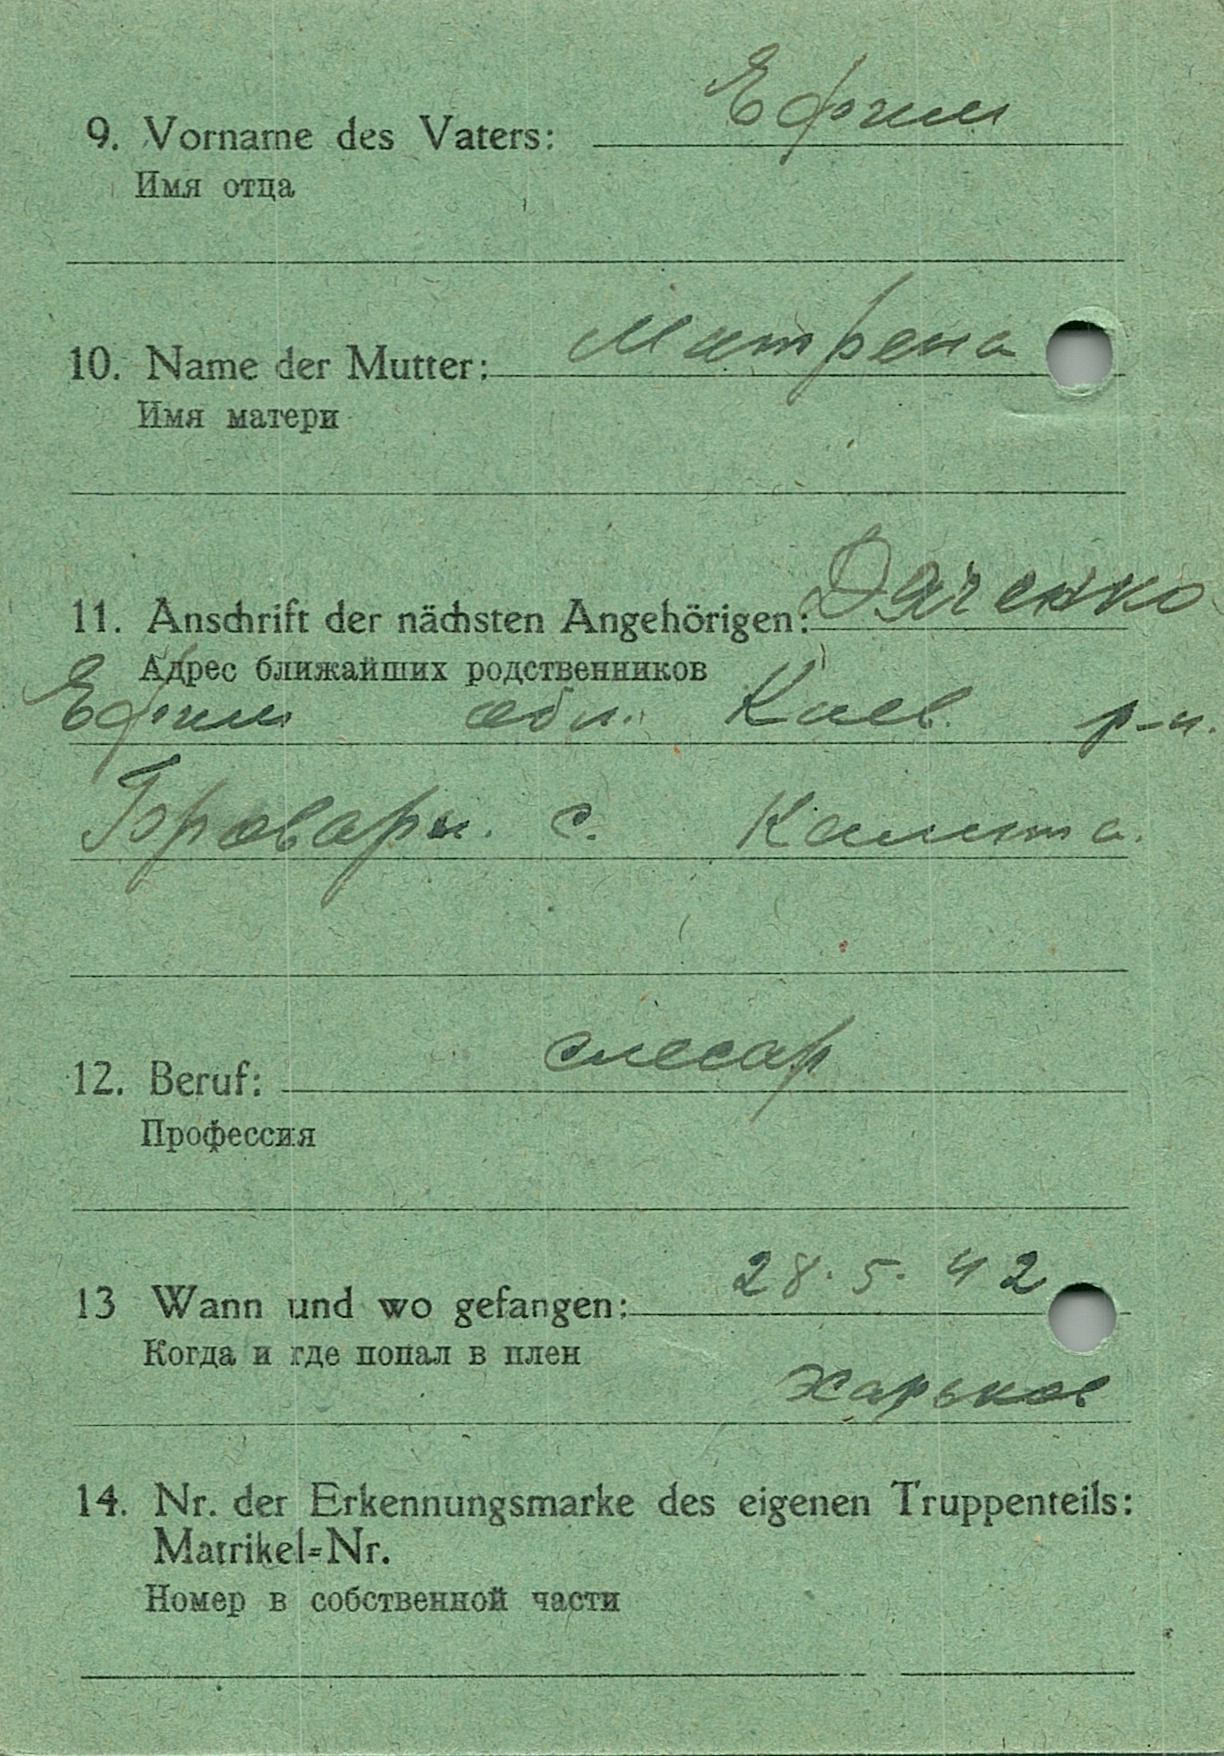 9. Vorname des Vaters: Ефим
Имя отца
10. Name der Mutter: Матрена
Имя матери
11. Anschrift der nächsten Angehörigen: Дяченко
Адрес ближайших родственников
Ефим обл. Киев. р-н.
Бровары. с. Калита.
12. Beruf: слесар
Профессия
13 Wann und wo gefangen: 28.5.42
Когда и где попал в плен
Харьков
14. Nr. der Erkennungsmarke des eigenen Truppenteils:
Matrikel=Nr.
Номер в собственной части